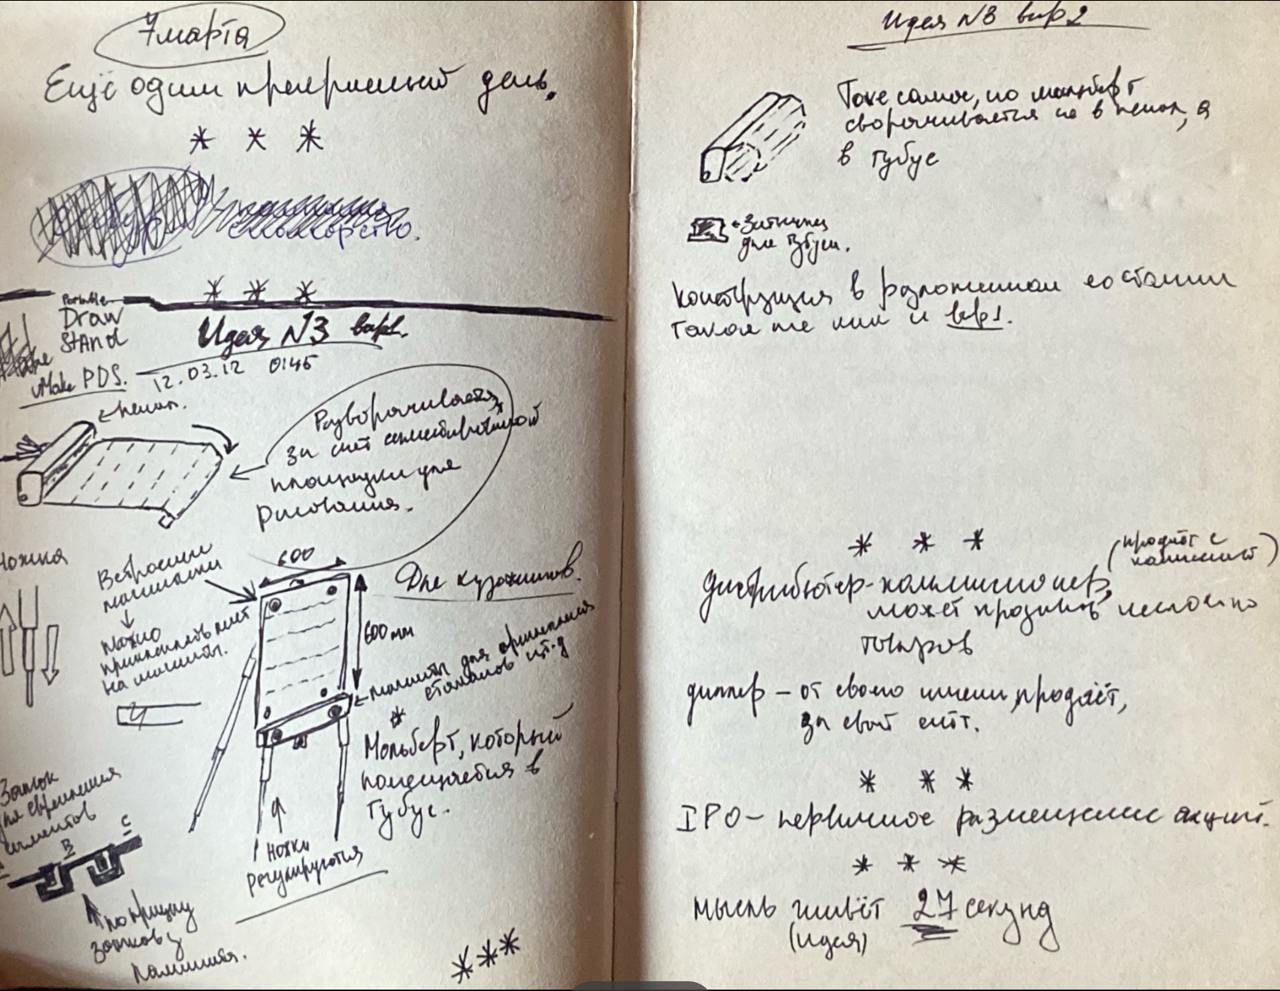 7 марта
Ещё один прекрасный день.
* * *
* * *
Portable
Draw
Stand
Make PDS.
Идея N3 вар1.
12.03.12 0145
пенал.
Разворачивается,
за счёт
площадки для
рисования.
Ножка
Встроенные
магниты
Можно
прикреплять лист
на магниты.
600
600 мм
Для художников.
магниты для крепления
стаканов и т.д
* Мольберт, который
помещается в
тубус.
Ножки
регулируются
Замок
для скрепления
элементов
B
C
по принципу
замков у
ламината.
* * *
Идея N3 вар2
Тоже самое, но мольберт
сворачивается не в пенал, а
в тубус
Затычка
для тубуса.
Конструкция в разложенном состоянии
такая же как и вар1.
* * *
(продаёт с
дистрибьютер - коммисионер,
может продавать несколько
товаров
диллер - от своего имени продаёт,
за свой счёт.
* * *
IPO - первичное размещение акций.
* * *
мысль живёт 27 секунд
(идея)